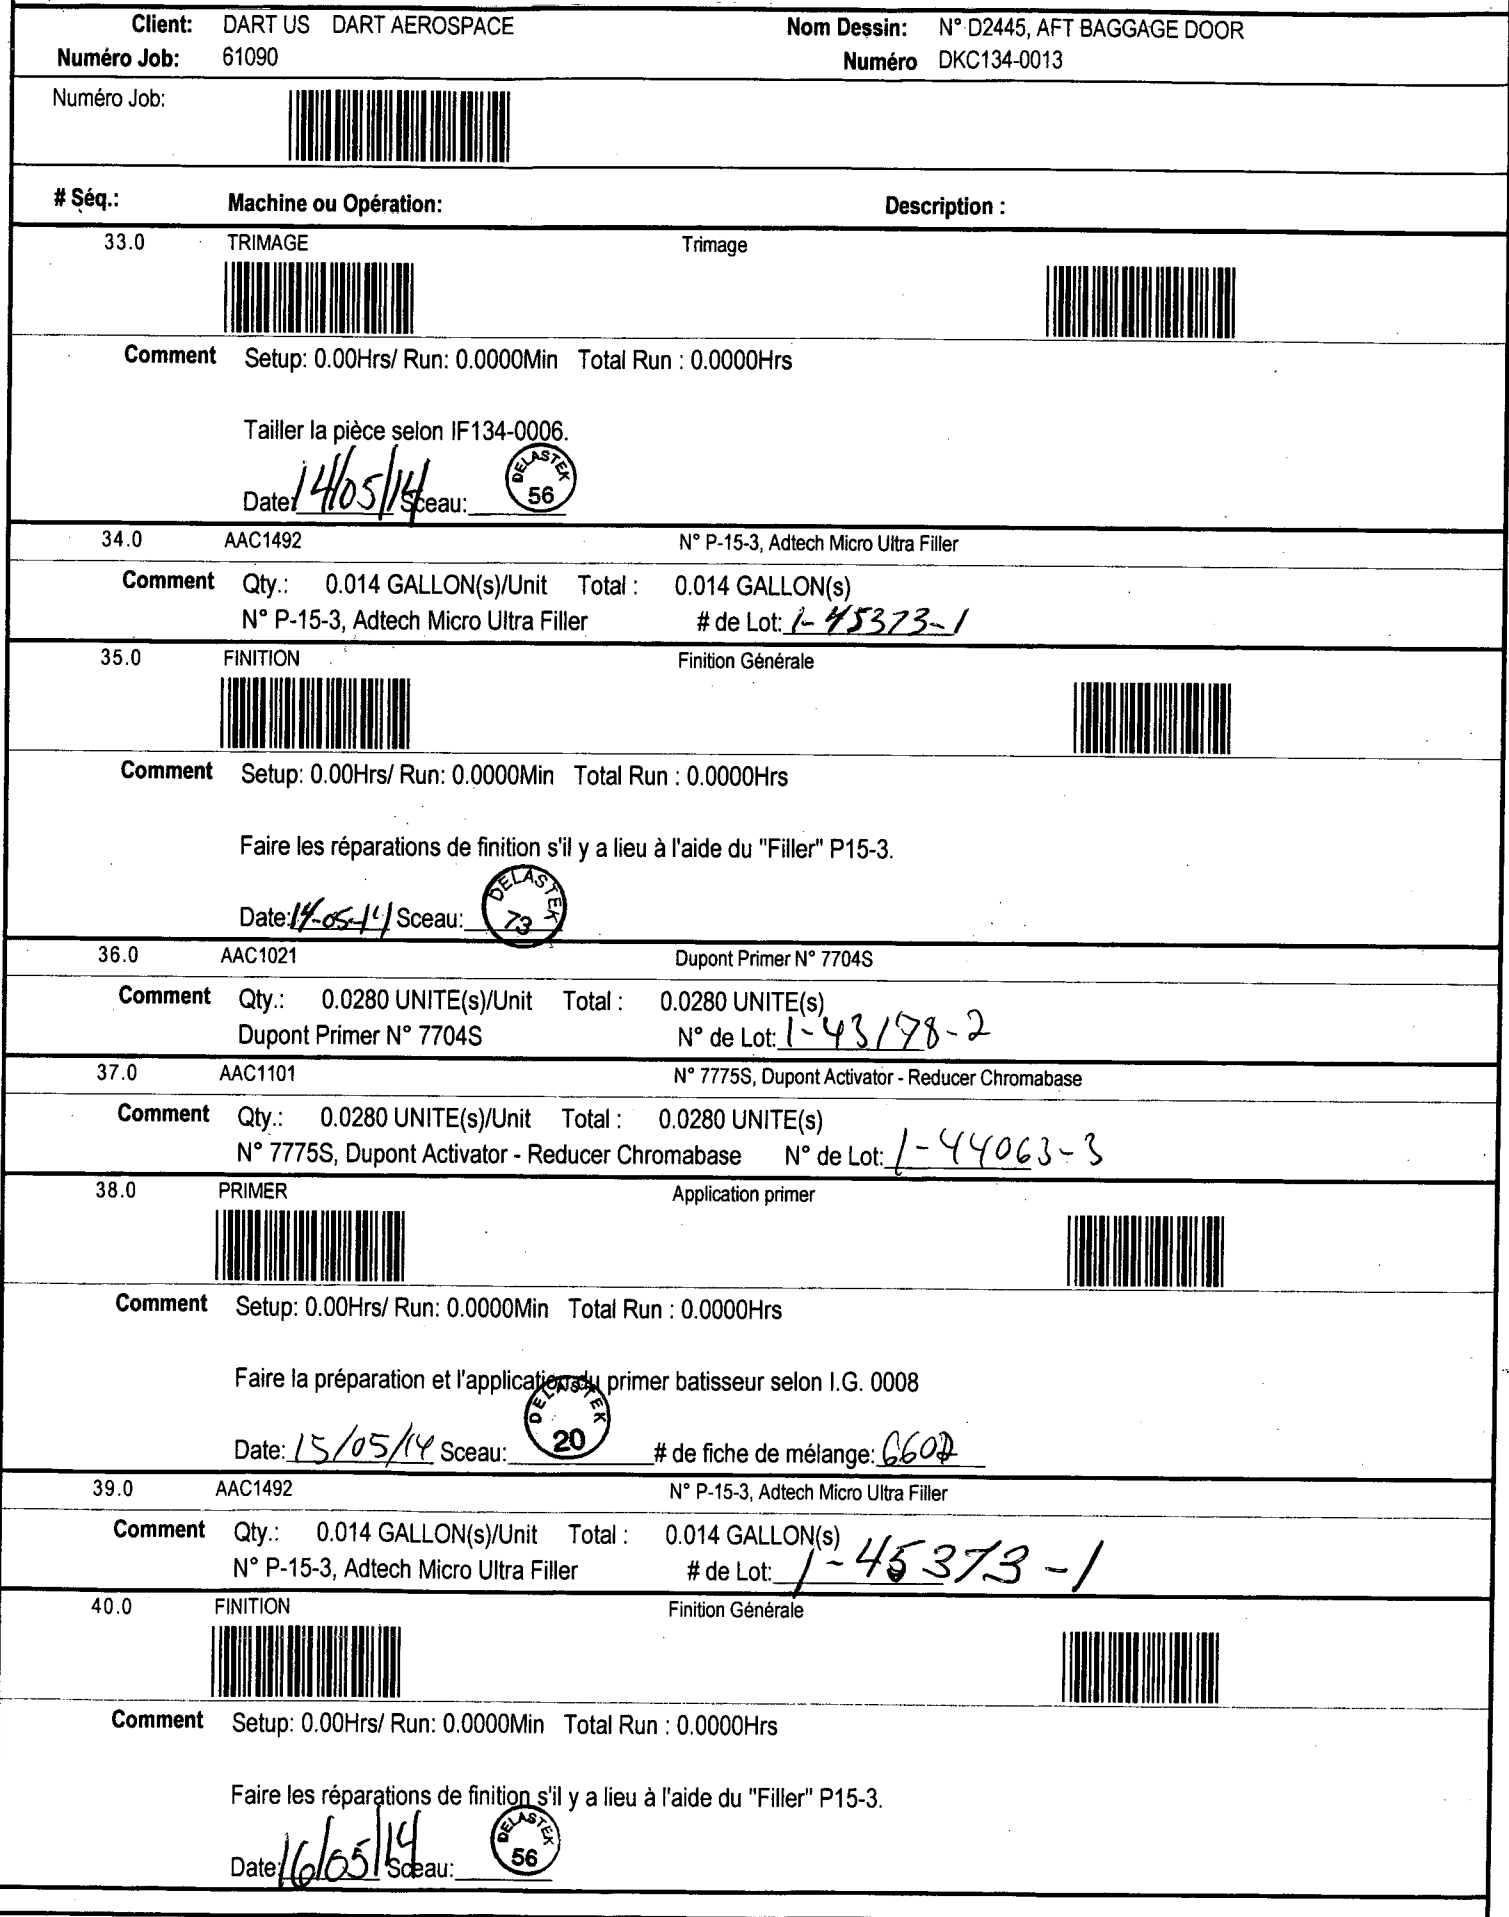 Client: DART US DART AEROSPACE Nom Dessin: N° D2445, AFT BAGGAGE DOOR
Numéro Job: 61090 Numéro DKC134-0013
Numéro Job:
# Séq.: Machine ou Opération: Description :
33.0 TRIMAGE Trimage
Comment Setup: 0.00Hrs/ Run: 0.0000Min Total Run : 0.0000Hrs
Tailler la pièce selon IF134-0006.
Date: 14/05/14 Sceau: DELASTEK 56
34.0 AAC1492 N° P-15-3, Adtech Micro Ultra Filler
Comment Qty.: 0.014 GALLON(s)/Unit Total : 0.014 GALLON(s)
N° P-15-3, Adtech Micro Ultra Filler # de Lot: 1-45373-1
35.0 FINITION Finition Générale
Comment Setup: 0.00Hrs/ Run: 0.0000Min Total Run : 0.0000Hrs
Faire les réparations de finition s'il y a lieu à l'aide du "Filler" P15-3.
Date: 14-05-14 Sceau: DELASTEK 73
36.0 AAC1021 Dupont Primer N° 7704S
Comment Qty.: 0.0280 UNITE(s)/Unit Total : 0.0280 UNITE(s)
Dupont Primer N° 7704S N° de Lot: 1-43178-2
37.0 AAC1101 N° 7775S, Dupont Activator - Reducer Chromabase
Comment Qty.: 0.0280 UNITE(s)/Unit Total : 0.0280 UNITE(s)
N° 7775S, Dupont Activator - Reducer Chromabase N° de Lot: 1-44063-3
38.0 PRIMER Application primer
Comment Setup: 0.00Hrs/ Run: 0.0000Min Total Run : 0.0000Hrs
Faire la préparation et l'application du primer batisseur selon I.G. 0008
Date: 15/05/14 Sceau: DELASTEK 20 # de fiche de mélange:
39.0 AAC1492 N° P-15-3, Adtech Micro Ultra Filler
Comment Qty.: 0.014 GALLON(s)/Unit Total : 0.014 GALLON(s)
N° P-15-3, Adtech Micro Ultra Filler # de Lot: 1-45373-1
40.0 FINITION Finition Générale
Comment Setup: 0.00Hrs/ Run: 0.0000Min Total Run : 0.0000Hrs
Faire les réparations de finition s'il y a lieu à l'aide du "Filler" P15-3.
Date: 16/05/14 Sceau: DELASTEK 56